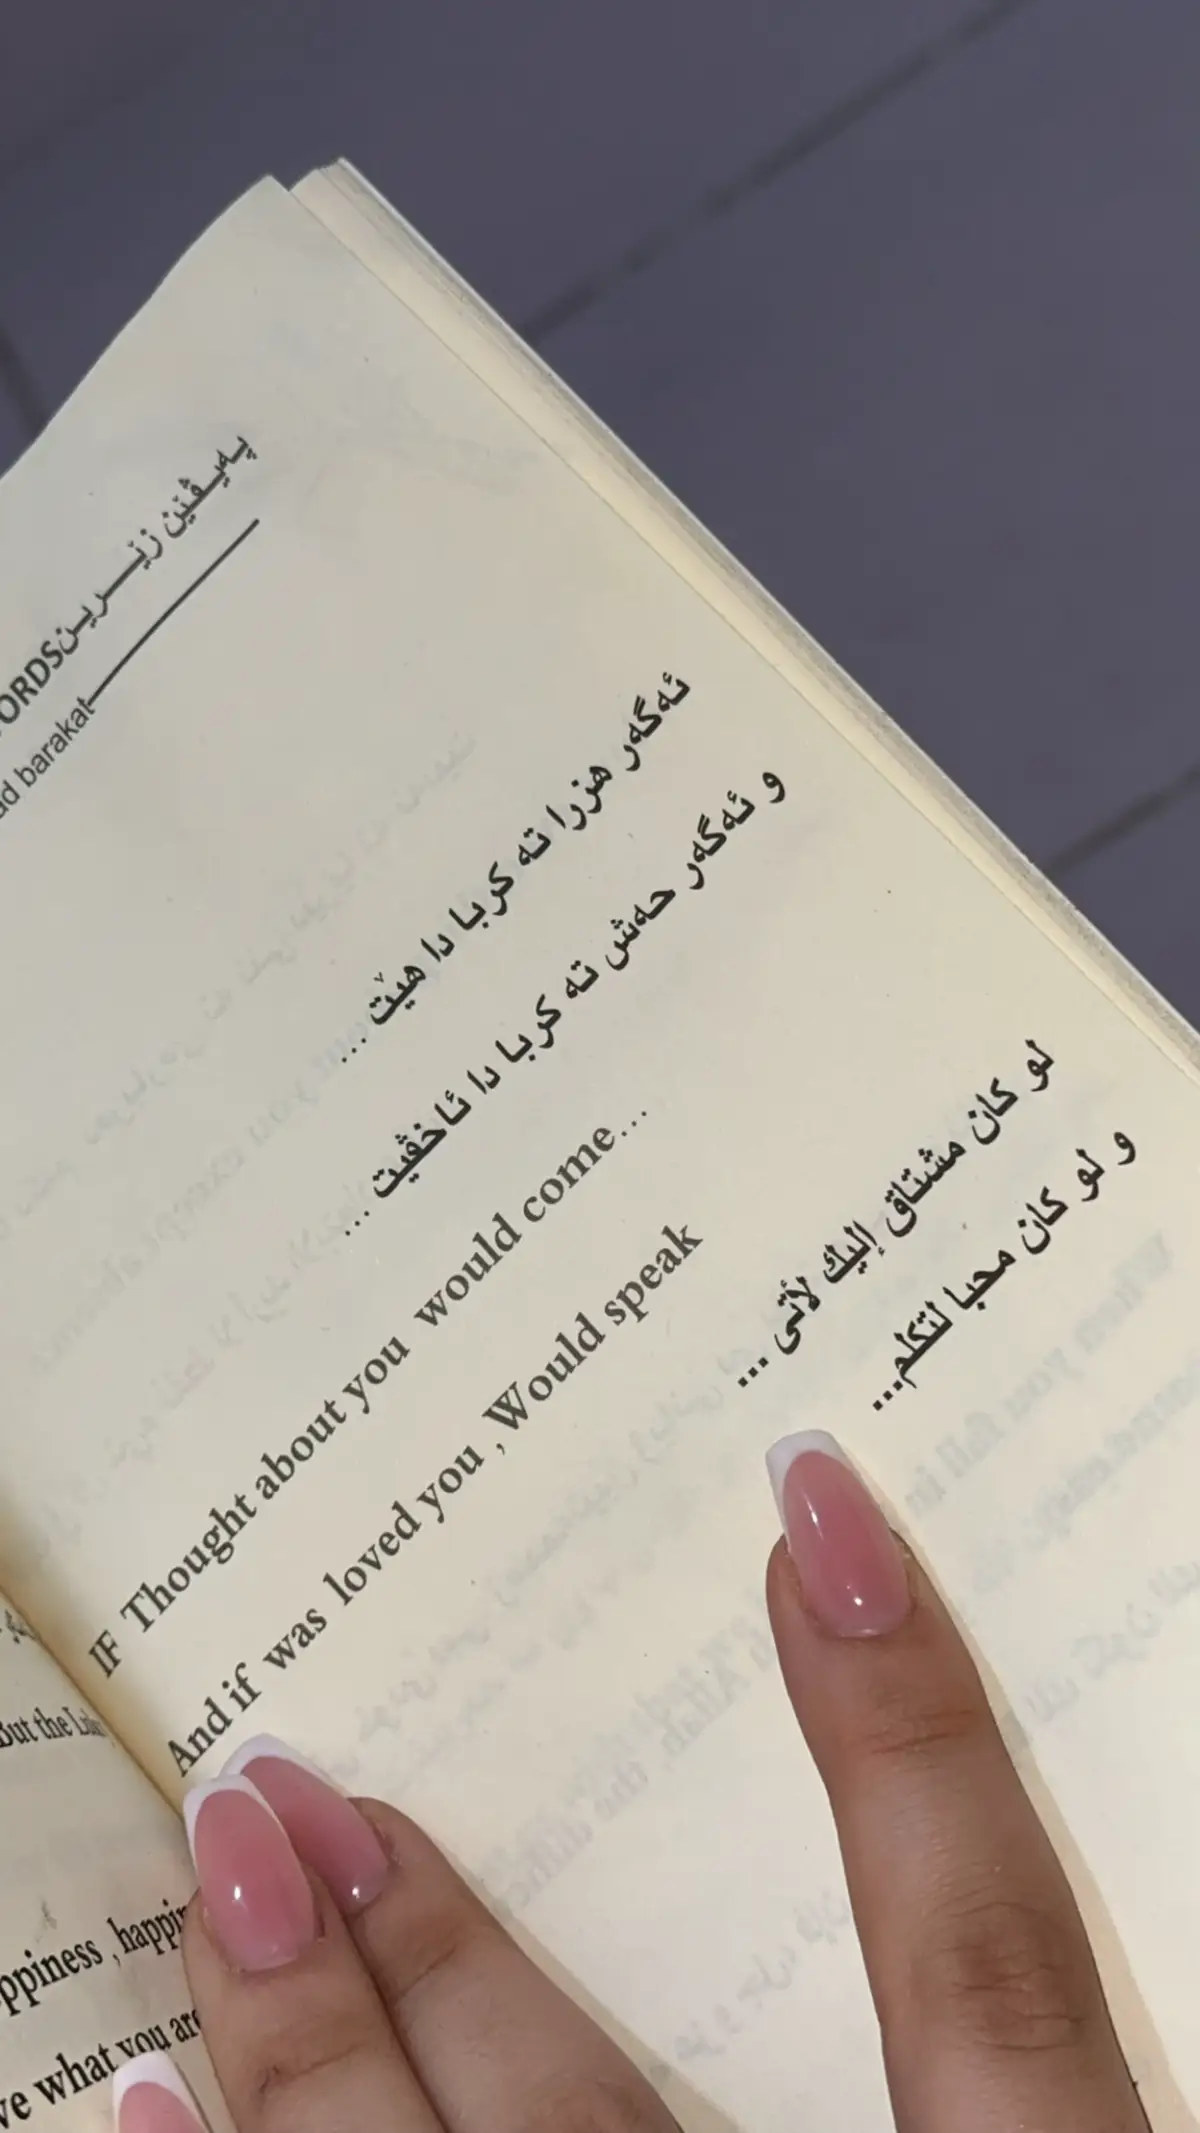 پەیڤێن زێرین
barakat
ئەگەر هزرا تە کربا دا هێت ...
و ئەگەر حەش تە کربا دا ئاخڤیت ...
IF Thought about you would come...
And if was loved you , Would speak
لو كان مشتاق إليك لأتى ...
و لو كان محبا لتكلم...
But the
, 
ve what you are